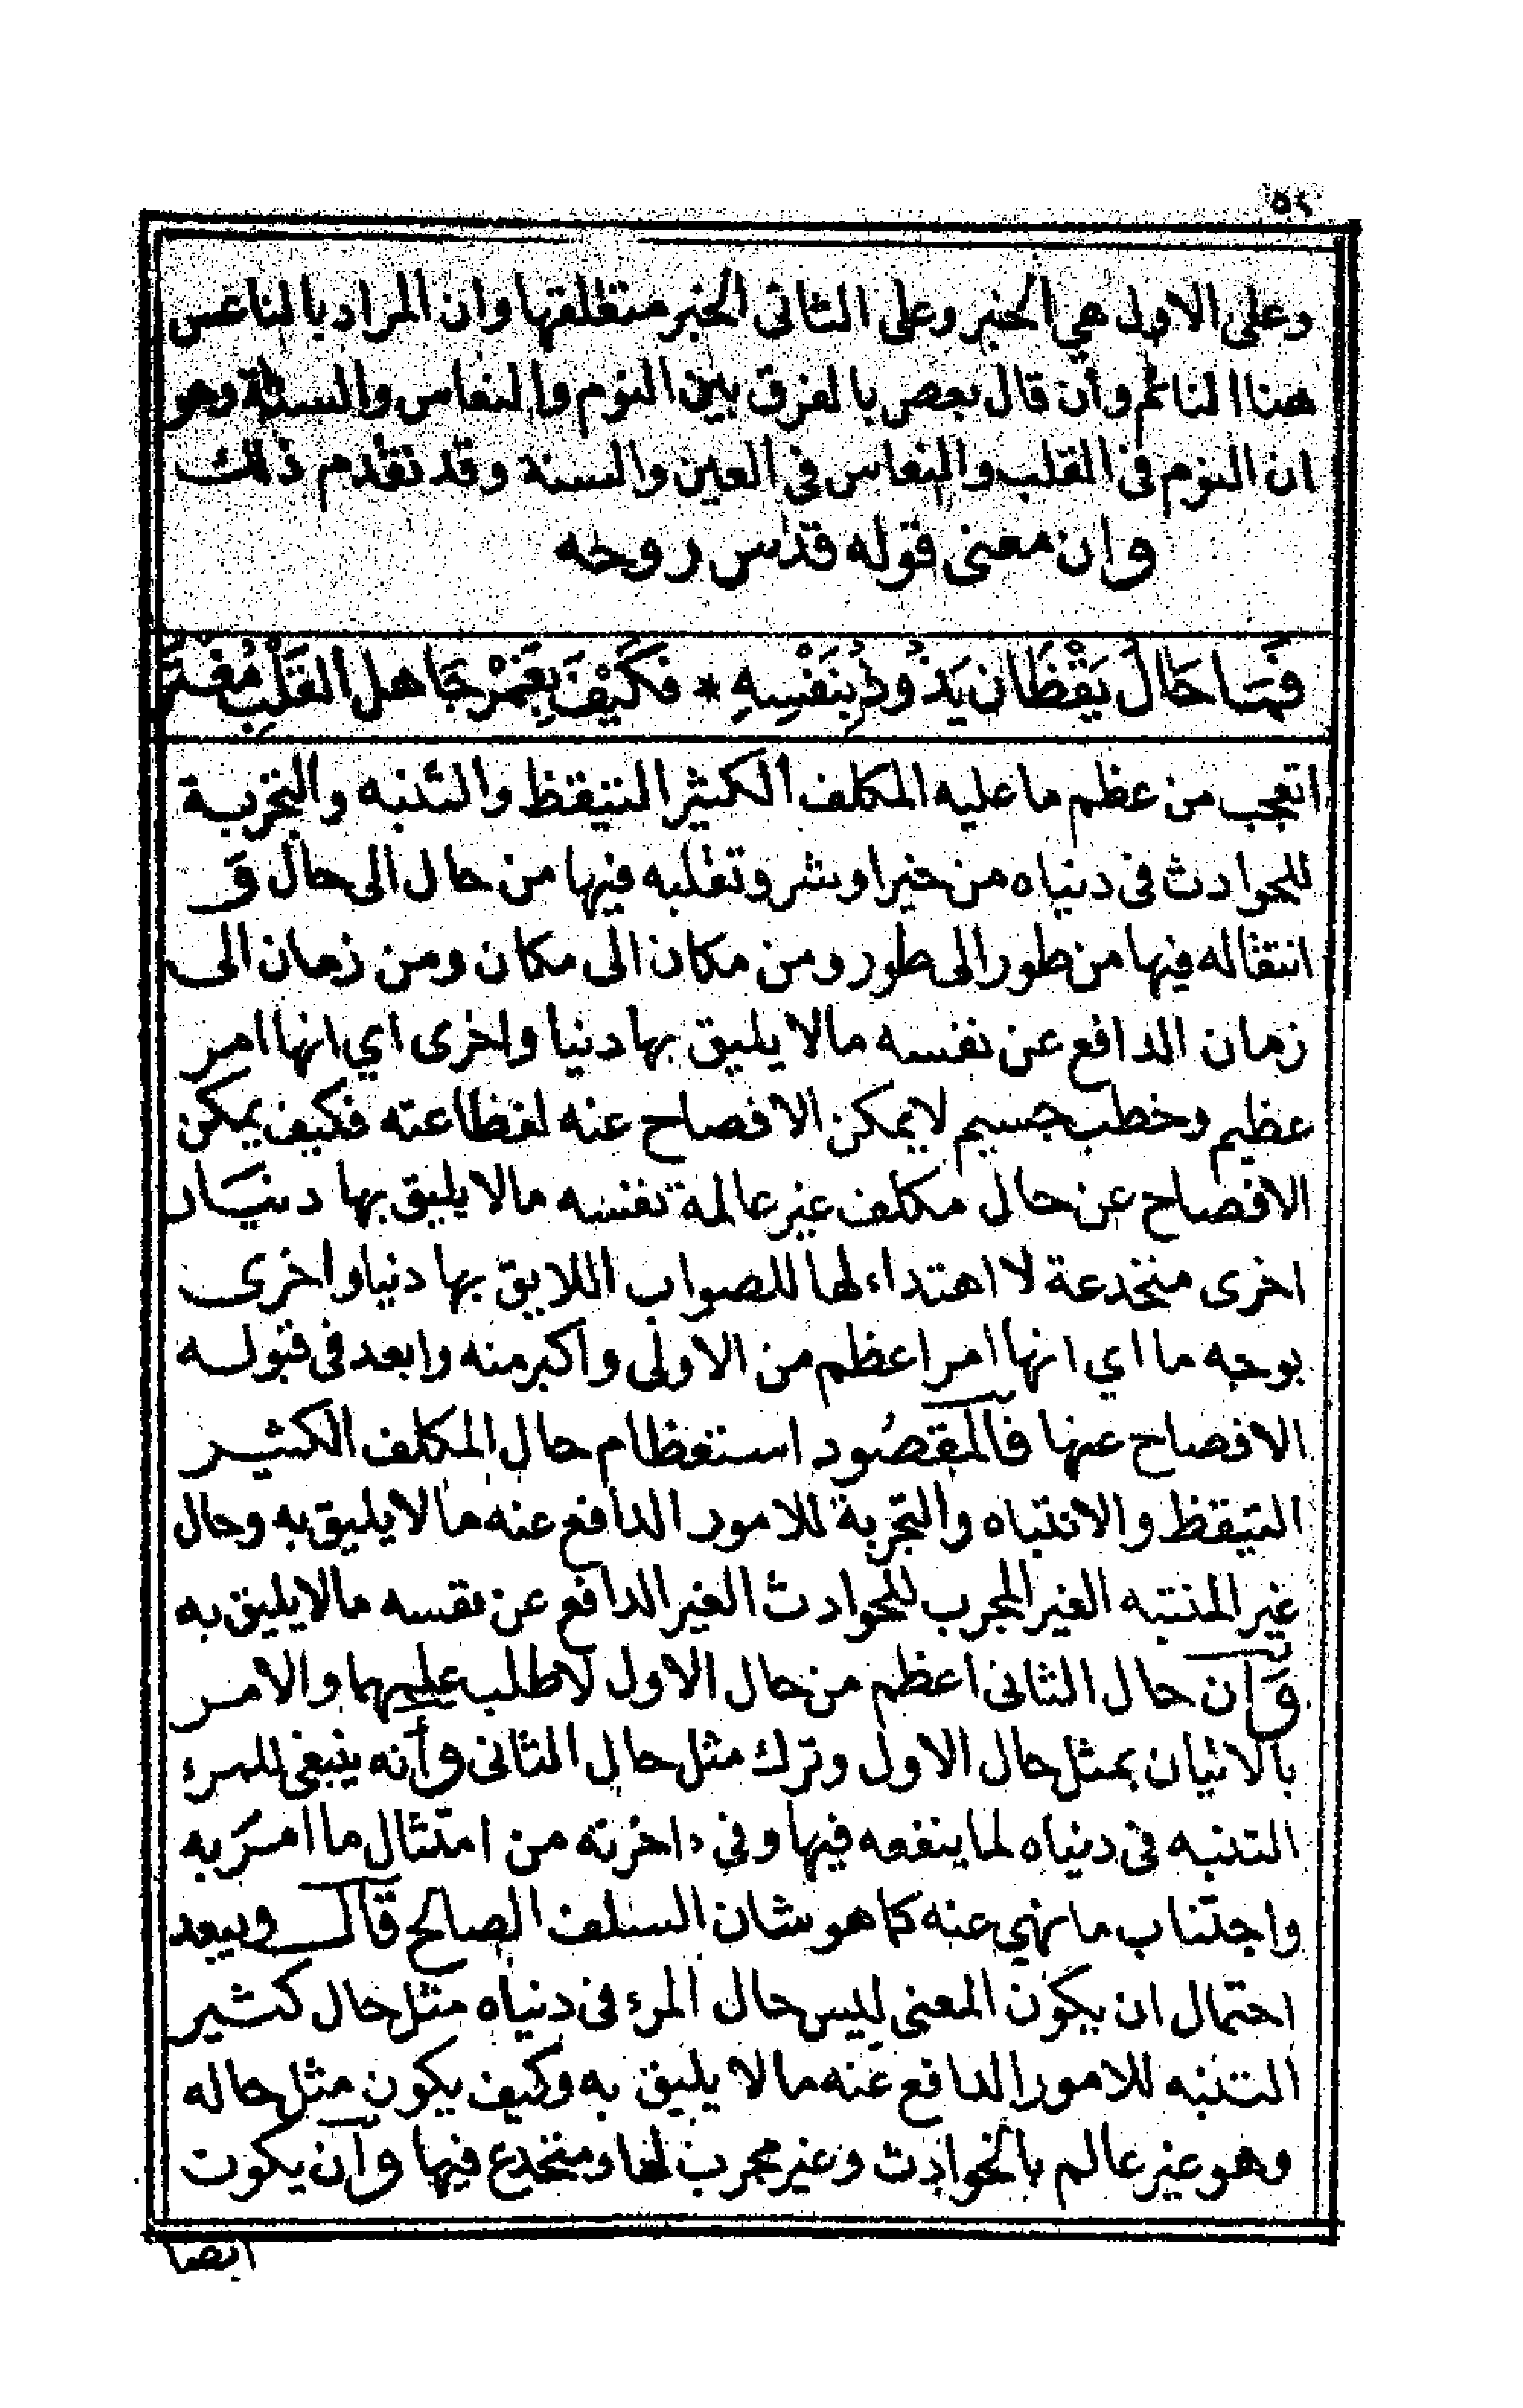 ٥٢
وعلى الاول هي الخبر وعلى الثاني الخبر متعلقها وان المراد بالناعس
هنا النائم وان قال بعض بالفرق بين النوم والنعاس والسنة وهو
ان النوم في القلب والنعاس في العين والسنة وقد تقدم ذلك
وان معنى قوله قدس روحه
فَمَا حَالُ يَقْظَان يَذُودُ بِنَفْسِهِ * فَكَيْفَ بِغَمْرٍ جَاهل القَلْبِ مُغْتَرّ
اتعجب من عظم ما عليه المكلف الكثير التيقظ والتنبه والتجربة
للحوادث في دنياه من خير او شر وتقلبه فيها من حال الى حال وَ
انتقاله فيها من طور الى طور ومن مكان الى مكان ومن زمان الى
زمان الدافع عن نفسه مالا يليق بها دنيا واخرى اي انها امر
عظيم وخطب جسيم لا يمكن الافصاح عنه لفظاعته فكيف يمكن
الافصاح عن حال مكلف غير عالمة نفسه مالا يليق بها دنيَا و
اخرى منخدعة لا اهتداء لها للصواب اللايق بها دنيا واخرى
بوجه ما اي انها امر اعظم من الاولى واكبر منه وابعد في قبوله
الافصاح عنها فالمقصُود استعظام حال المكلف الكثير
التيقظ والانتباه والتجربة للامور الدافع عنه ما لا يليق به وحال
غير المنتبه الغير المجرب للحوادث الغير الدافع عن نفسه مالا يليق به
وَان حال الثاني اعظم من حال الاول لاطلب عليهما والامر
بالاتيان بمثل حال الاول وترك مثل حال الثاني وأنه ينبغي للمرء
التنبه في دنياه لما ينفعه فيها وفي ءاخرته من امتثال ما امرَ به
واجتناب ما نهي عنه كما هو شان السلف الصالح قال ويبعد
احتمال ان يكون المعنى ليس حال المرء في دنياه مثل حال كثير
التنبه للامور الدافع عنه مالا يليق به وكيف يكون مثل حاله
وهو غير عالم بالحوادث وغير مجرب لها ومنخدع فيها وان يكون
ايضا